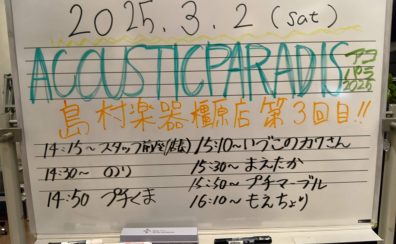 2025.3.2 (sat)
ACOUSTICPARADIS
アコパラ
2025
島村楽器 橿原店 第3回目!!
14:15～スタッフ前座
14:30～ のり
14:50 プチくま
15:10～いづこのカワさん
15:30～ まえたか
15:50～プチマーブル
16:10～もえちょり